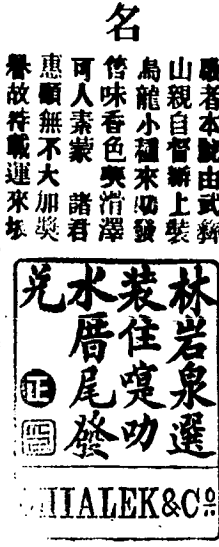 名
啟者本號由武彞
山親自督辦上裝
烏龍小種來叻發
售味香色奧清澤
可人素蒙 諸君
惠顧無不大加獎
譽故特載運來埗
林岩泉選
装住寔叻
水厝尾發
兌
正
HALEK&Co